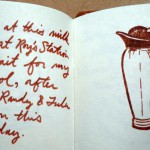 at this milk
at Roy's Station
wait for my
after
Randy &
on this
day.